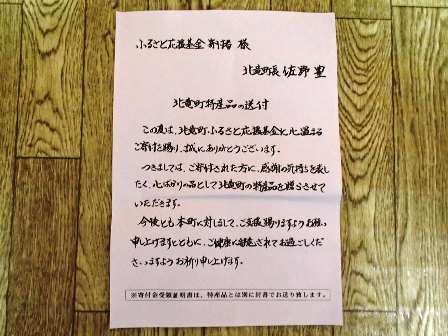 ふるさと応援基金 寄付者 様
北竜町長 佐野 豊
北竜町特産品の送付
この度は、北竜町ふるさと応援基金に心温まる
ご寄付を賜り、誠にありがとうございます。
つきましては、ご寄付された方に、感謝の気持ちを表し
たく、心ばかりの品として北竜町の特産品を贈らさせて
いただきます。
今後とも本町に対しまして、ご支援賜りますようお願い
申し上げますとともに、ご健康に留意されてお過ごしくだ
さいますようお祈り申し上げます。
※寄付金受領証明書は、特産品とは別に封書でお送り致します。